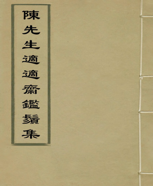 陳先生適適齋鑑鬚集